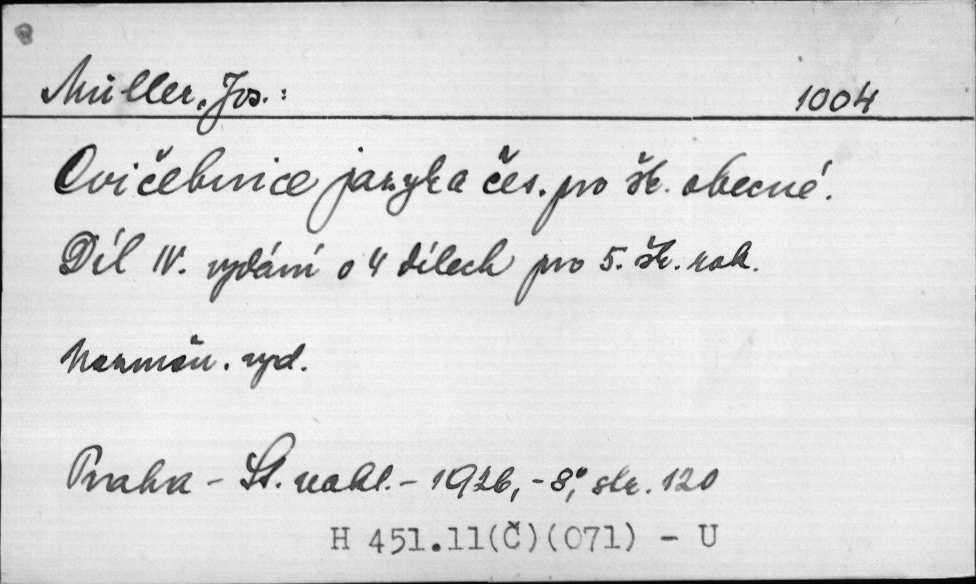 Müller, Jos.: 1004
Cvičebnice jazyka čes. pro šk. obecné.
Díl IV. vydání o 4 dílech pro 5. šk. rok.
Nezměn. vyd.
Praha - St. nakl. - 1926, - 8°, str. 120
H 451.11(Č)(071) - U